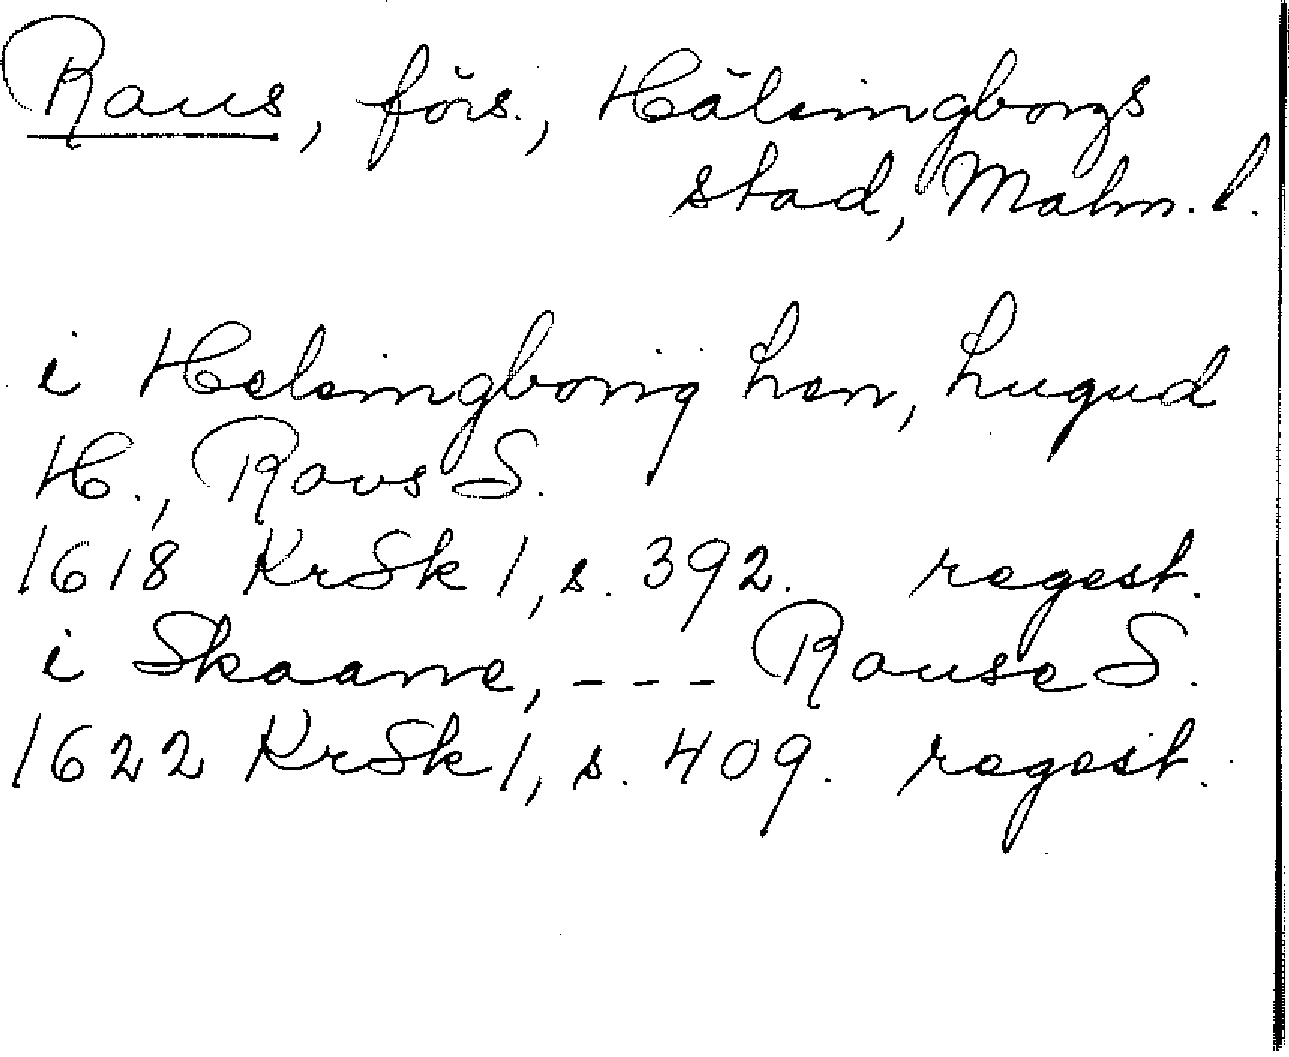 Raus, förs., Hälsingborgs
stad, Malm. l.
i Helsingborig Len, Lugud
H., Ravs S.
1618 KrSk 1, s. 392. regest.
i Skaane, --- Rause S.
1622 KrSk 1, s. 409. regest.